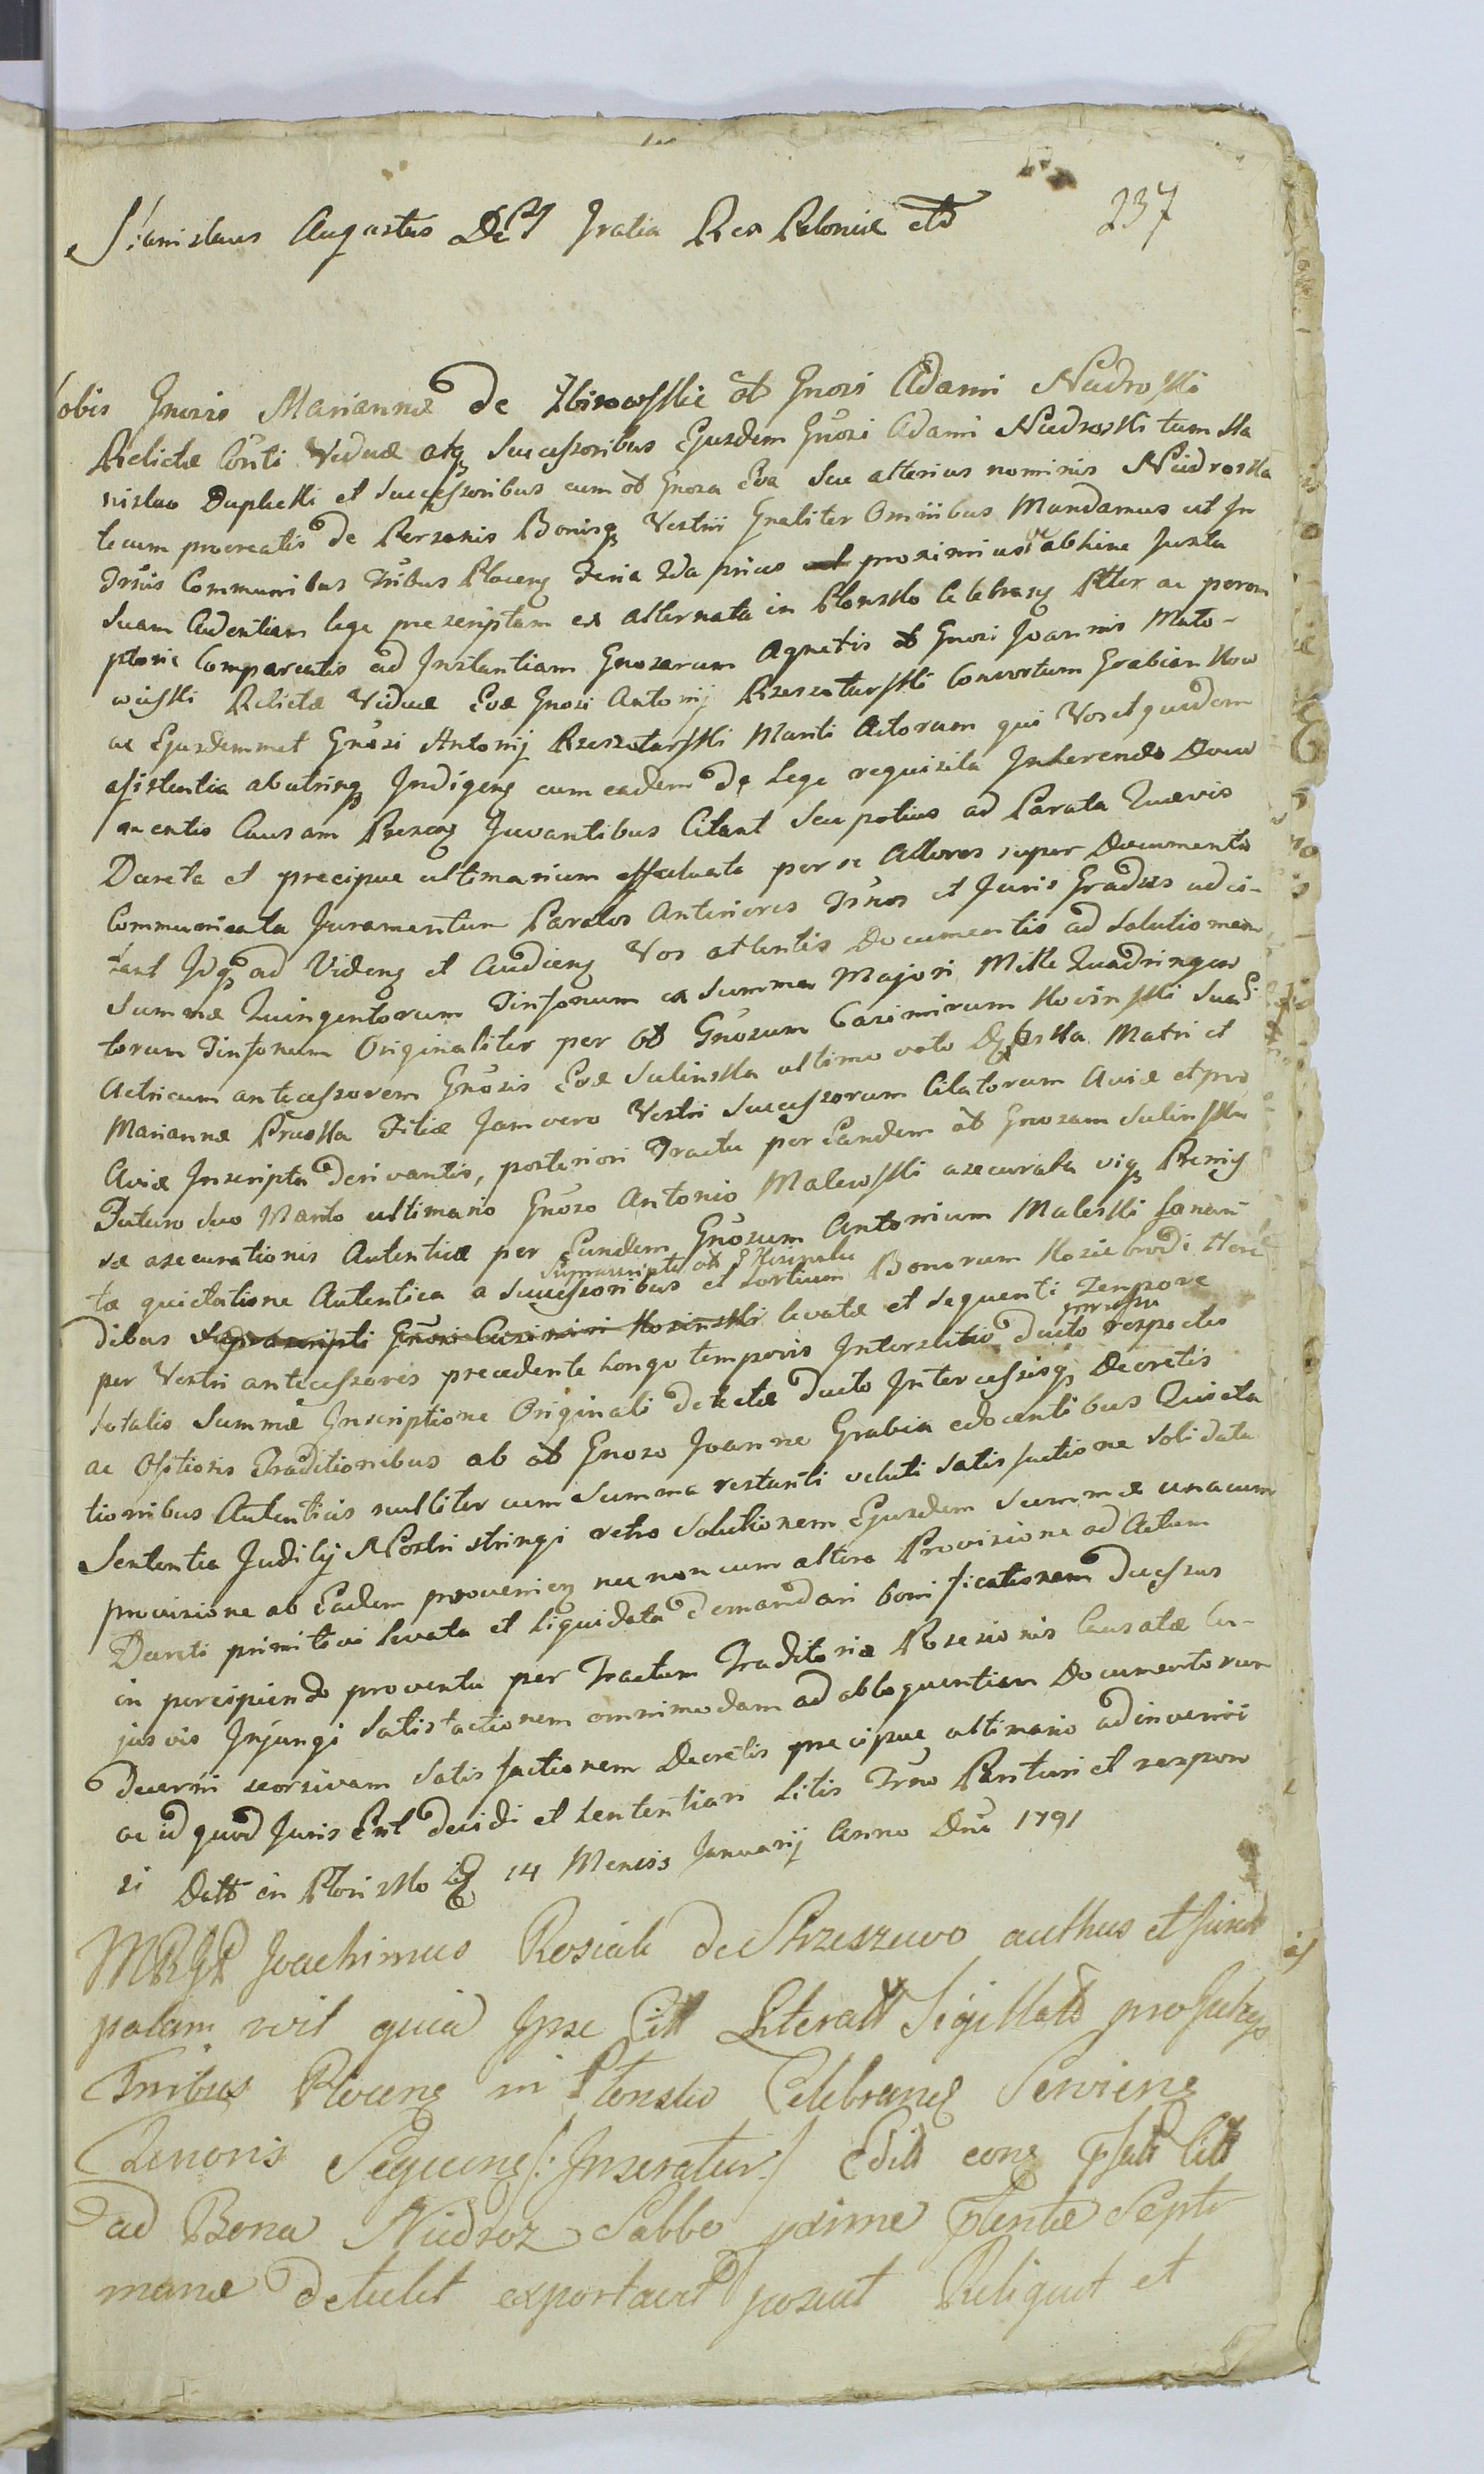 237
Stanislaus Augustus Dei Gratia Rex Poloniæ etc
Vobis Gnosis Mariannæ de Zbirowskie ol Gnosi Adami Niedroski
Relictæ Consti Viduæ atq Successoribus Ejusdem Gnosi Adami Niedroski tum Sta
nislao Duplicki et Successoribus cum ol Gnosa Eva Seu alterius nominis Niedroska
tecum procreatis de Personis Bonisq Vestrii Gnaliter Omnibus Mandamus ut In
Trnis Communibus Tribus Plocens Feria 2da prius proximius abhinc Juxta
Suam Cadentiam lege prescriptam ex alternata in Plonsko Celebrans Ptter ac perem
ptorie Compareatis ad Instantiam Gnosarum Agnetis ol Gnosi Joannis Mato-
wiski Relictæ Viduæ Evæ Gnosi Antonij Rzeszotarski Consortum Grabian Kow
ac Ejusdemmet Gnosi Antonij Rzeszotarski Mariti Actorum qui Vos et quidem
asistentia ab utrinq Indigens cum eadem de Lege requisita Inherendo Docu
mentis Causam Presens Juvantibus Citant Seu potius ad Parata Quævis
Dereta et precipue ultimarium effectuata per se Actores super Documenta
Communicata Juramentum Paratos Anteriores Trnos et Juris Gradus adci-
tant Idq ad Videns et Audiens Vos attentis Documentis ad Solutionem
Summæ Quingentorum Tinfonum ex Summa Majori Mille Quadringen
torum Tinfonum Originaliter per ol Gnosum Casimirum Kosinski Sua
Actricum antecessorem Gnosis Evæ Sulinska ultimo voto Matri et
Mariannæ Pruska Filiæ Jam vero Vestri Successorum Citatorum Aviæ et pro
Aviæ Inscripta derivantis, posteriori Tractu per Eandem ol Gnosam Sulinska
Futuro Suo Marito ultimario Gnoso Antonio Malewski asecurata vigq Premis
sæ asecurationis Autenticæ per Eundem Gnosum Antonium Maleski Sanan
tæ quietatione Autentica a Successoribus et Sortium Bonorum Kosiebrodi Here
dibus Suprascripti Gnosi Casimiri Kosinski levatæ et Sequenti Tempore
per Vestri antecessores precedente Longo temporis Interstitio ducto respectu
totalis Summæ Inscriptione Originali detectæ ducto Intercessisq Decretis
ac Ofstionis Traditionibus ab ol Gnoso Joanne Grabia edocentibus Quieta
tionibus Autenticis nulliter cum Summa restanti veluti Satisfactione Solidata
Sententia Judicij Nostri stringi retro Solutionem Ejusdem Summæ unacum
provisione ab Eadem provenien nec non cum altera Provisione ad Actum
Decreti primitivi levata et liquidata demandari bonificationem decessus
in percipiendo proventu per Tractum Traditoriæ Posesionis Causatæ Cu-
jusvis Injungi Satisfactionem omnimodam ad obloquentiam Documentorum
decerni seorsivam Satisfactionem Decretis precipue ultimario adinveniri
ac id quod Juris Erit decidi et Sententiari Litis Trno Parituri et respon
si Datt in Plonsko die 14 Mensis Januarij Anno Dni 1791
MRGP Joachimus Rosiak de Strzeszewo authus et jurat
palam recit quia Ipse Citt Literatt Sigillatt pro Judys
Trnibus Plocens in Plonsko Celebrans Serviens
Tenoris Sequens /: Inseratur :/ Editt cons Psati Citt
ad Bona Niedroz Sabbo pxime Ptentæ Septi
manæ detulit exportavit posuit Reliquit et